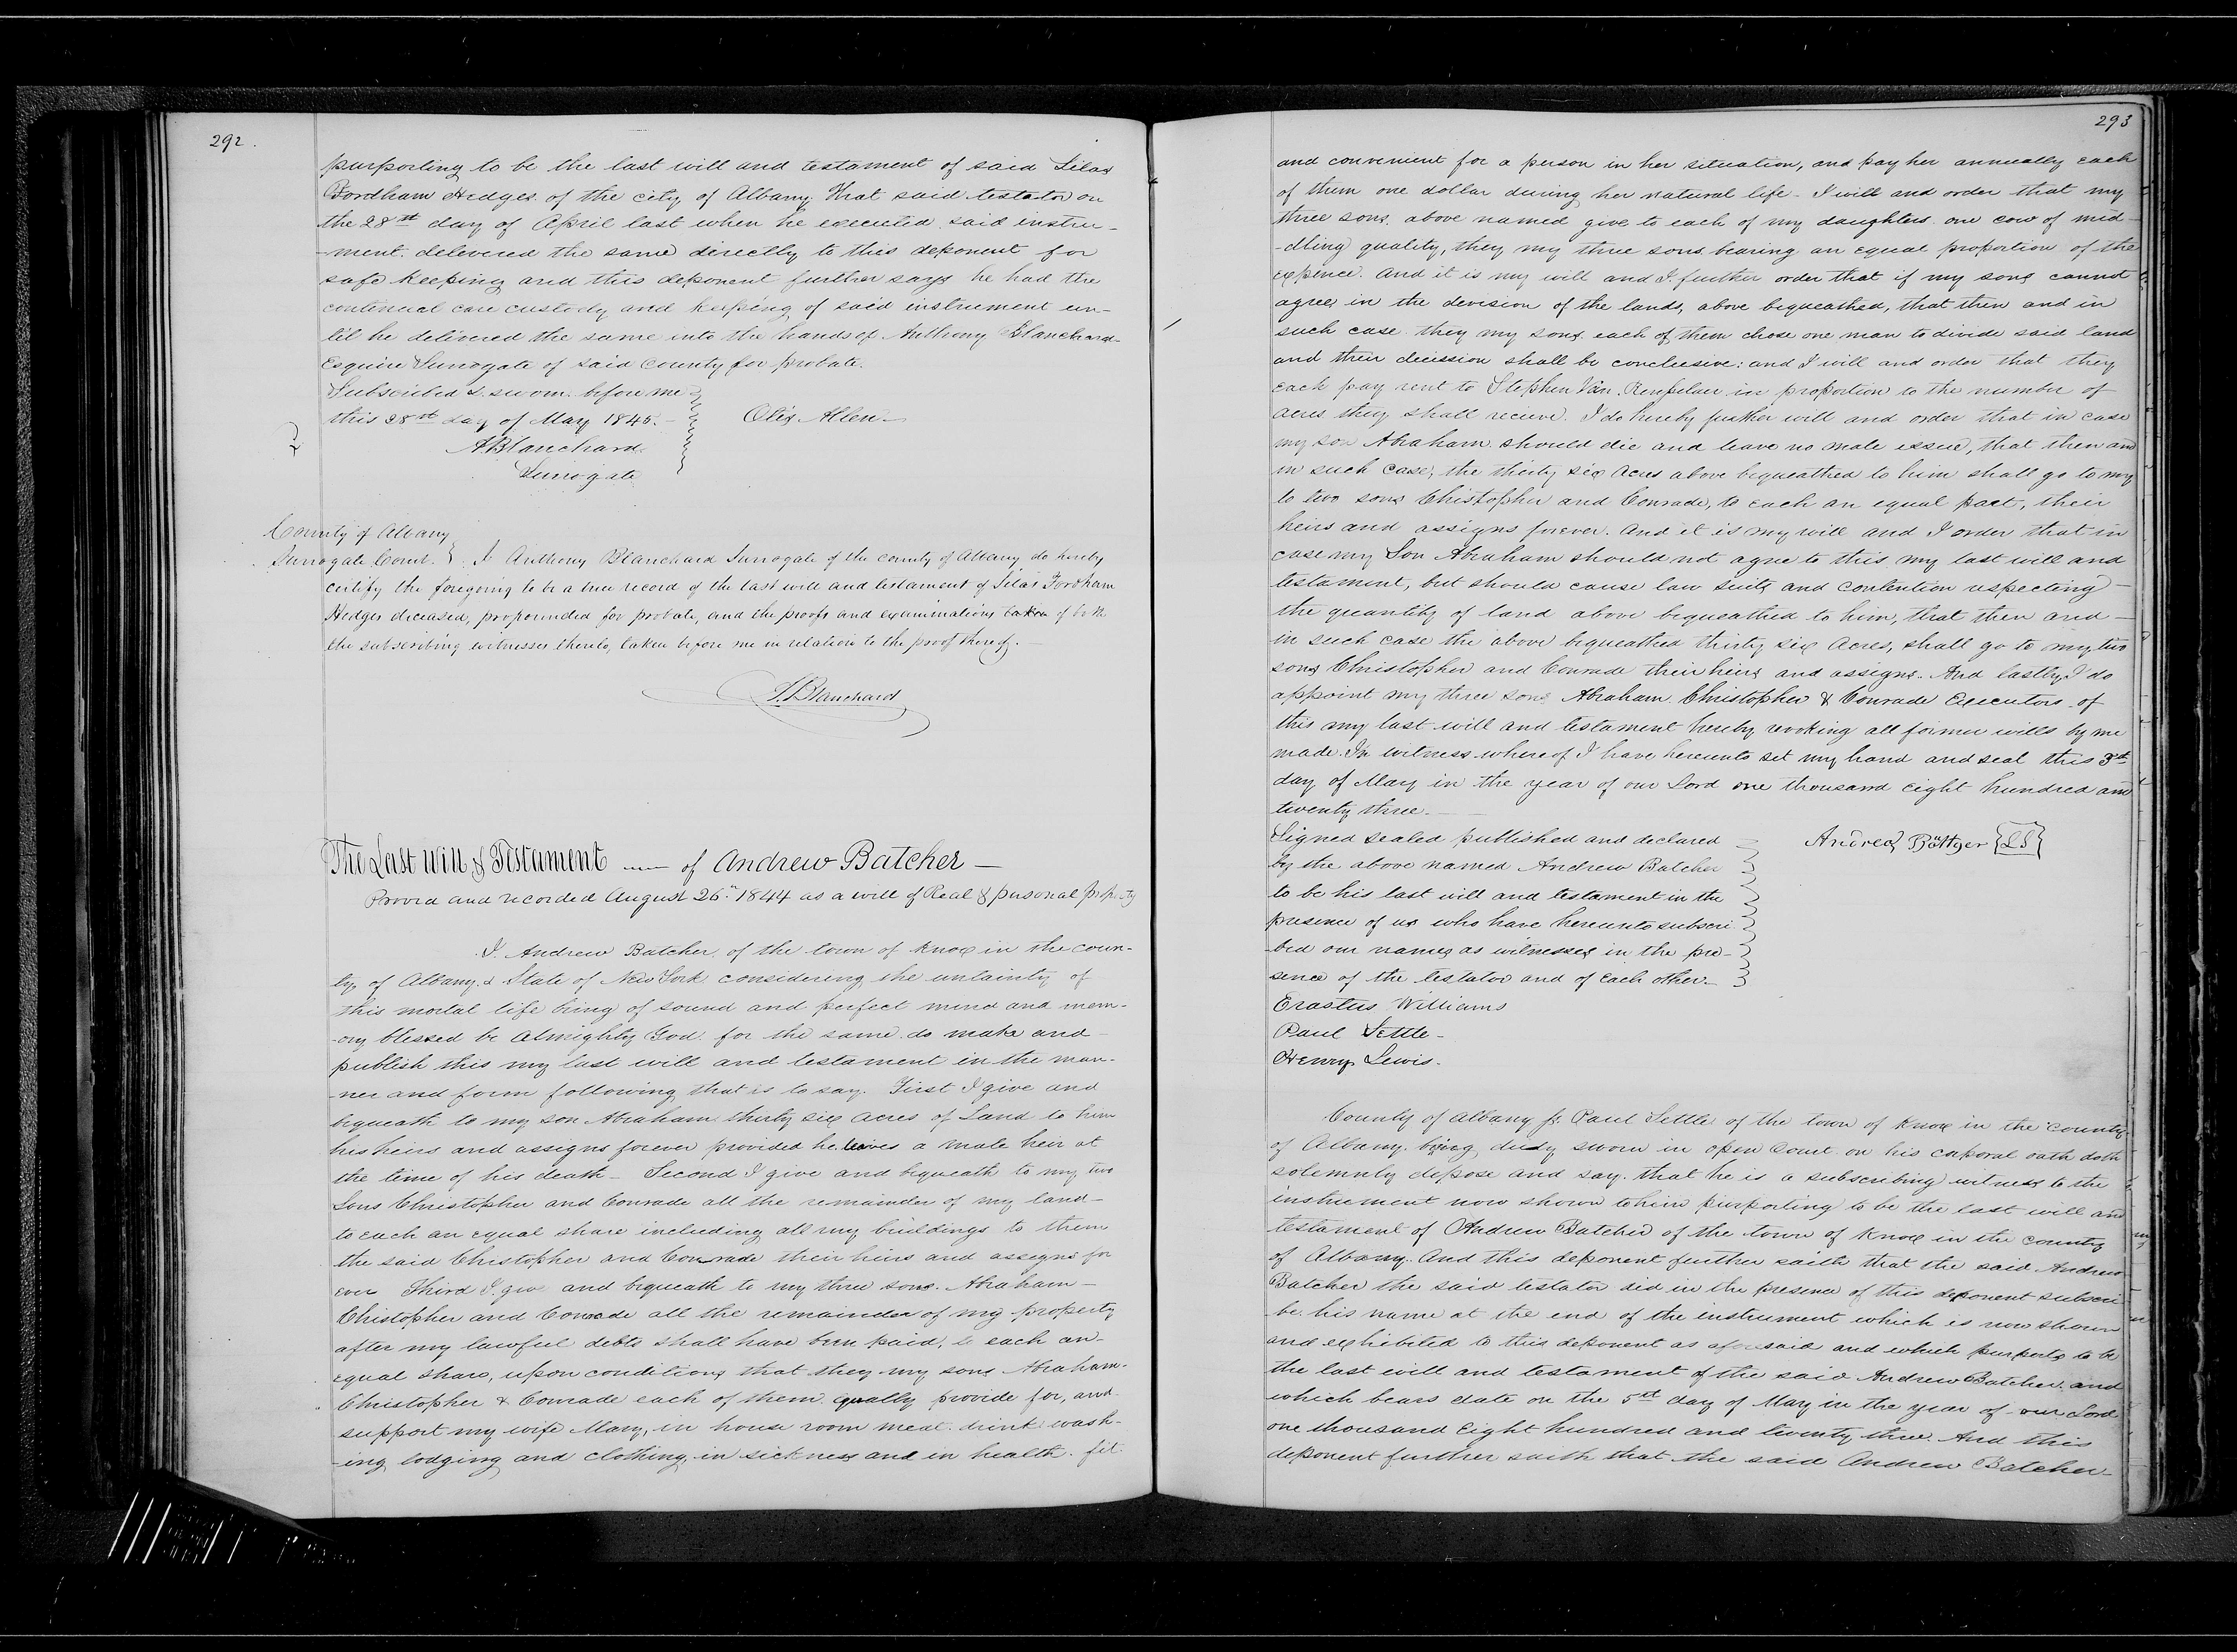 292.
purporting to be the last will and testament of said Silas
Fordham Hedges of the city of Albany. That said testator on
the 28st day of April last when he executed said instru-
-ment delivered the same directly to this deponent for
safe keeping and this deponent further says he had the
continual care custody and keeping of said instrument un-
til he delivered the same into the hands of Anthony Blanchard
Esquire Surrogate of said county for probate.
Subscribed & sworn before me
this 28st day of May 1845. Allen
ABlanchard
Surrogate
County of Albany
Surrogate Court. I Anthony Blanchard Surrogate of the county of Albany do hereby
certify the foregoing to be a true record of the last will and testament of Silas Fordham
Hedges deceased, propounded for probate, and the proofs and examinations taken of both
the subscribing witnesses thereto, taken before me in relation to the proof thereof.
A.Blanchard
The Last Will & Testament of Andrew Batcher
Proved and recorded August 26" 1844 as a will of Real & personal property
I. Andrew Batcher of the town of Knox in the coun-
ty of Albany & State of New York considering the untainty of
this mortal life being of sound and perfect mind and mem-
-ory blessed be Almighty God for the same do make and
publish this my last will and testament in the man-
-ner and form following that is to say. First I give and
bequeath to my son Abraham thirty six acres of Land to him
his heirs and assigns forever provided he leaves a male heir at
the time of his death - Second I give and bequeath to my two
Sons Christopher and Conrade all the remainder of my land
to each an equal share including all my buildings to them
the said Christopher and Conrade their heirs and assigns for
ever Third I give and bequeath to my three sons. Abraham
Christopher and Conrade all the remainder of my property
after my lawful debts shall have been paid, to each an
equal share, upon conditions that they my sons Abraham.
Christopher & Conrade each of them equally provide for, and
support my wife Mary, in house room meat drink wash-
-ing lodging and clothing in sickness and in health fit
293
and convenient for a person in her situation, and pay her annually each
of them one dollar during her natural life - I will and order that my
three sons above named give to each of my daughters one cow of mid-
-dling quality, they my three sons bearing an equal proportion of the
expence. And it is my will and I further order that if my sons cannot
agree in the devision of the lands, above bequeathed, that then and in
such case they my sons each of them chose one man to divide said land
and their decission shall be conclusive: and I will and order that they
each pay rent to Stephen Van Renselaer in proportion to the number of
acres they shall recieve. I do hereby further will and order that in case
my son Abraham should die and leave no male issue, that then and
in such case, the thirty six Acres above bequeathed to him shall go to my
to two sons Christopher and Conrade, to each an equal part, their
heirs and assigns forever. And it is my will and I order that in
case my Son Abraham should not agree to this my last will and
testament, but should cause law suits and contention respecting
the quantity of land above bequeathed to him, that then and
in such case the above bequeathed thirty six Acres, shall go to my two
sons Christopher and Conrade their heirs and assigns. And lastly I do
appoint my three sons Abraham Christopher & Conrade Executors of
this my last will and testament hereby revoking all former wills by me
made. In witness whereof I have hereunto set my hand and seal this 3th
day of May in the year of our Lord one thousand Eight hundred and
twenty three.
Signed sealed published and declared Andreas Böttger {LS}
by the above named Andrew Batcher
to be his last will and testament in the
presence of us who have hereunto subscri
-bed our names as witnesses in the pre-
sence of the testator and of each other.
Erastus Williams
Paul Settle
Henry Lewis.
County of Albany ss. Paul Settle of the town of Knox in the county
of Albany. being duly sworn in open Court on his corporal oath doth
solemnly depose and say. that he is a subscribing witness to the
instrument now shown to him purporting to be the last will and
testament of Andrew Batcher of the town of Knox in the county
of Albany. And this deponent further saith that the said Andrew
Batcher the said testator did in the presence of this deponent subscri
-be his name at the end of the instrument which is now shown
and exhibited to this deponent as aforesaid and which purports to be
the last will and testament of the said Andrew Batcher. and
which bears date on the 5st day of May in the year of our Lord
one thousand Eight hundred and twenty three. And this
deponent further saith that the said Andrew Batcher